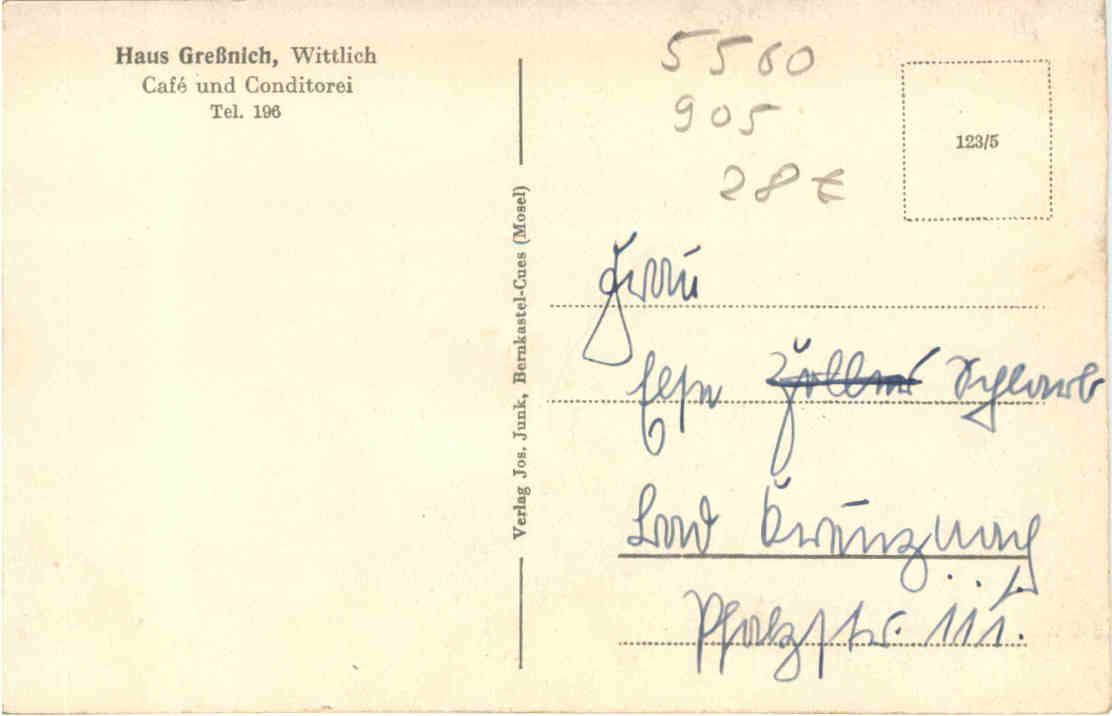 Haus Greßnich, Wittlich
Café und Conditorei
Tel. 196
Verlag Jos. Junk, Bernkastel-Cues (Mosel)
5560
905
28 €
123/5
Frau
Else
Bad Kreuznach
Pfalzstr. 111.